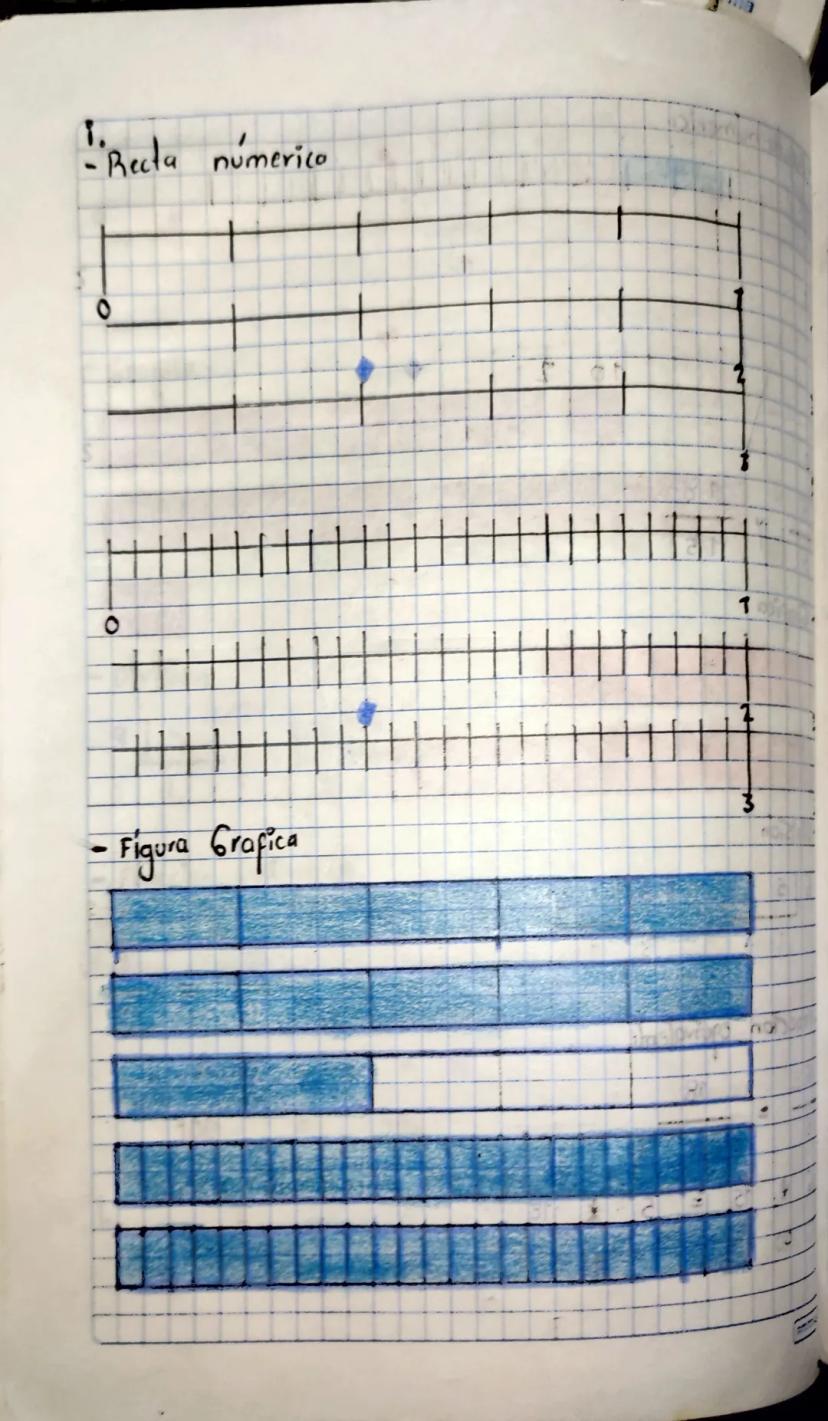 1.
- Recta númerico
0
1
2
3
0
1
2
3
- Fígura Grafica